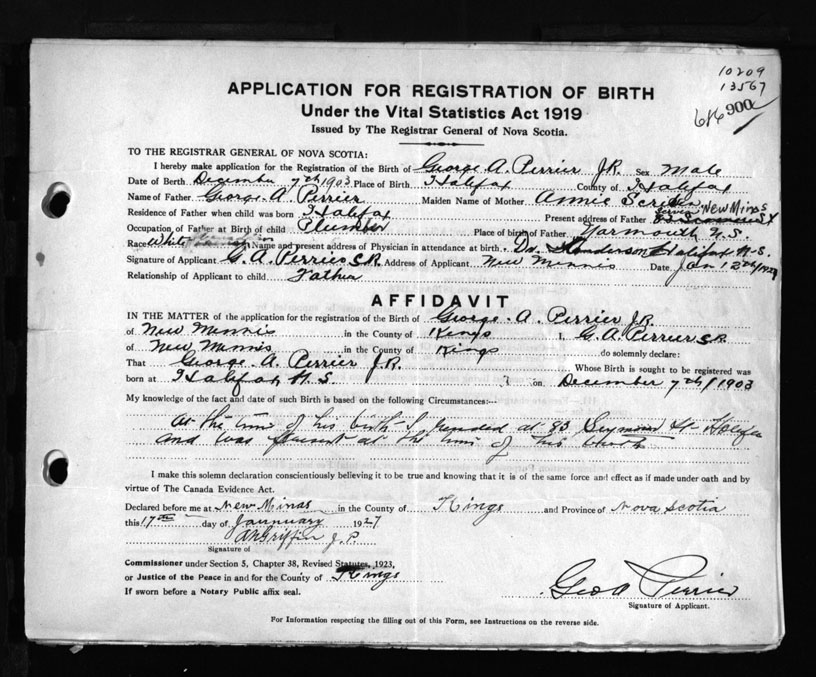 10209
13567
616 900
APPLICATION FOR REGISTRATION OF BIRTH
Under the Vital Statistics Act 1919
Issued by The Registrar General of Nova Scotia.
TO THE REGISTRAR GENERAL OF NOVA SCOTIA:
I hereby make application for the Registration of the Birth of George A. Perrier JR. Sex Male
Date of Birth December 7th 1903 Place of Birth Halifax County of Halifax
Name of Father George A. Perrier Maiden Name of Mother Annie
New Minas
Residence of Father when child was born Halifax Present address of Father
Occupation of Father at Birth of child Plumber Place of birth of Father Yarmouth N.S.
Race White Name and present address of Physician in attendance at birth. Dr. Halifax N.S.
Signature of Applicant G. A. Perrier SR. Address of Applicant New Minnis Date Jan 12th/1927
Relationship of Applicant to child Father
AFFIDAVIT
IN THE MATTER of the application for the registration of the Birth of George A. Perrier JR.
of New Minnis in the County of Kings I, G. A. Perrier SR.
of New Minnis in the County of Kings do solemnly declare:
That George A. Perrier J.R. Whose Birth is sought to be registered was
born at Halifax N.S. on December 7th/1903
My knowledge of the fact and date of such Birth is based on the following Circumstances:—
At the time of his birth I resided at 93 Seymour St Halifax
and was present at the time of his birth
I make this solemn declaration conscientiously believing it to be true and knowing that it is of the same force and effect as if made under oath and by
virtue of The Canada Evidence Act.
Declared before me at New Minas in the County of Kings and Province of Nova Scotia
this 17th day of Jannuary 1927
Griffin J.P.
Signature of
Commissioner under Section 5, Chapter 38, Revised Statutes, 1923,
or Justice of the Peace in and for the County of Kings
If sworn before a Notary Public affix seal.
Geo A Perrier
Signature of Applicant.
For Information respecting the filling out of this Form, see Instructions on the reverse side.